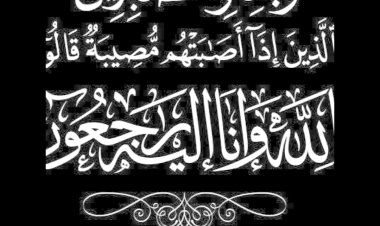 ٱلَّذِينَ إِذَآ أَصَٰبَتْهُم مُّصِيبَةٌ قَالُوٓا
لِلَّهِ وَإِنَّا إِلَيْهِ رَٰجِعُونَ